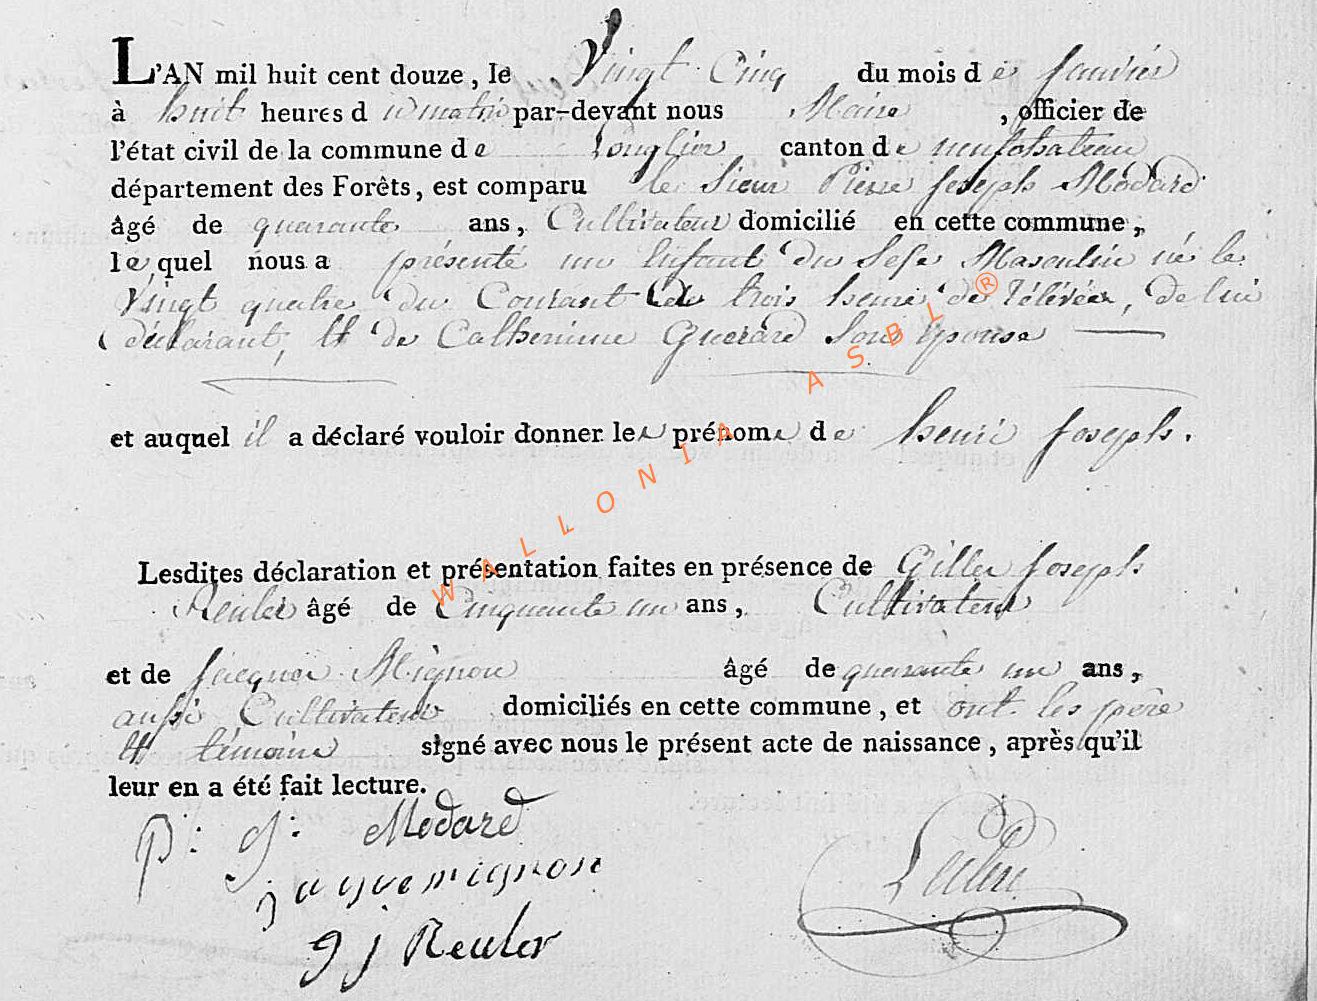 L'AN mil huit cent douze, le Vingt Cinq du mois de Janvier
à huit heures du matin par-devant nous Maire, officier de
l'état civil de la commune de Longlier canton de neufchateau
département des Forêts, est comparu le Sieur Pierre Joseph Modard
âgé de quarante ans, Cultivateur domicilié en cette commune,
lequel nous a présenté un Enfant du Sexe Masculin né le
Vingt quatre du Courant à trois heure de rélévée, de lui
déclarant, Et de Catherinne Guerard Son épouse
et auquel il a déclaré vouloir donner les prénoms de henri Joseph.
Lesdites déclaration et présentation faites en présence de Gilles Joseph
Reuler âgé de Cinquante un ans, Cultivateur
et de Jacques Mignon âgé de quarante un ans,
aussi Cultivateur domiciliés en cette commune, et ont les père
Et témoins signé avec nous le présent acte de naissance, après qu'il
leur en a été fait lecture.
P: J: Modard
jaque mignon
g j Reuler
WALLONIA ASBL ®